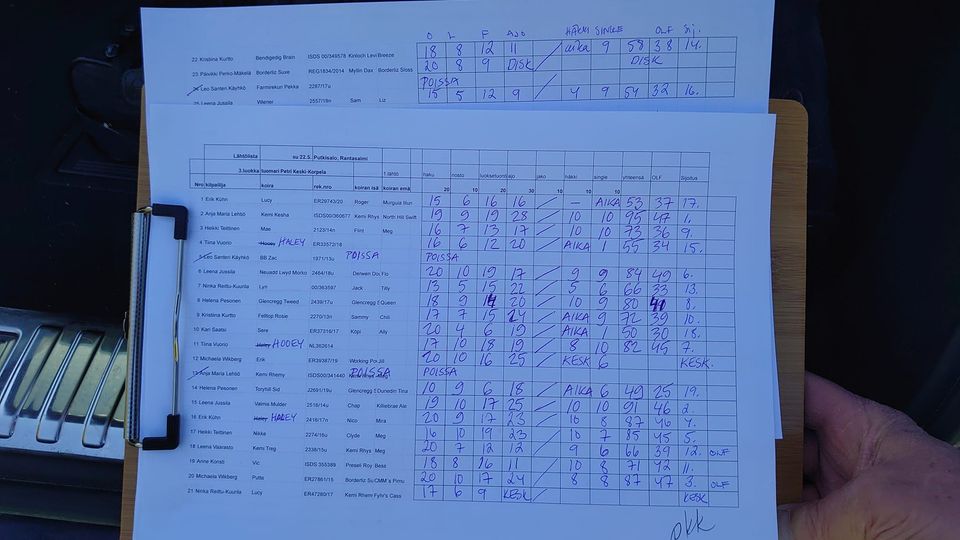 O L F AJO HÄKKI SINGLE OLF Sij.
22 Kristiina Kurtto Bendigedig Brain ISDS 00/349578 Kinloch Levi Breeze 18 8 12 11 / aika 9 58 38 14.
23 Päivikki Perko-Mäkelä Borderliz Suxe REG1834/2014 Myllin Dax Borderliz Sloss 20 8 9 DISK DISK
24 Leo Santeri Käyhkö Farmirekun Pekka 2287/17u POISSA
25 Leena Jussila Wiener 2557/19n Sam Liz 15 5 12 9 / 4 9 54 32 16.
Lähtölista su 22.5. Putkisalo, Rantasalmi
3.luokka tuomari Petri Keski-Korpela 1.lähtö haku nosto luoksetuonti ajo jako häkki single yhteensä OLF Sijoitus
Nro kilpailija koira rek.nro koiran isä koiran emä 20 10 20 30 10 10 10
1 Erik Kühn Lucy ER29743/20 Roger Murguia Ilun 15 6 16 16 / - AIKA 53 37 17.
2 Anja Maria Lehtiö Kemi Kesha ISDS00/360677 Kemi Rhys North Hill Swift 19 9 19 28 / 10 10 95 47 1.
3 Heikki Teittinen Mae 2123/14n Flint Meg 16 7 13 17 / 10 10 73 36 9.
4 Tiina Vuorio HALEY ER33572/18 16 6 12 20 / AIKA 1 55 34 15.
5 Leo Santeri Käyhkö BB Zac 1971/13u POISSA POISSA
6 Leena Jussila Neuadd Lwyd Morko 2484/18u Derwen Doi Flo 20 10 19 17 / 9 9 84 49 6.
7 Ninka Reittu-Kuurila Lyn 00/363597 Jack Tilly 13 5 15 22 / 5 6 66 33 13.
8 Helena Pesonen Glencregg Tweed 2439/17u Glencregg S Queen 18 9 14 20 / 10 9 80 41 8.
9 Kristiina Kurtto Felltop Rosie 2270/13n Sammy Chili 17 7 15 24 / AIKA 9 72 39 10.
10 Kari Saatsi Sere ER37316/17 Köpi Ally 20 4 6 19 / AIKA 1 50 30 18.
11 Tiina Vuorio HOOEY NL362614 17 10 18 19 / 8 10 82 45 7.
12 Michaela Wikberg Erik ER39387/19 Working Poi Jill 20 10 16 25 / KESK 6 KESK.
13 Anja Maria Lehtiö Kemi Rhemy ISDS00/341440 POISSA POISSA
14 Helena Pesonen Toryhill Sid J2691/19u Glencregg S Dunedin Tina 10 9 6 18 / AIKA 6 49 25 19.
15 Leena Jussila Valmis Mulder 2516/14u Chap Killiebrae Ale 19 10 17 25 / 10 10 91 46 2.
16 Erik Kühn HALEY 2416/17n Nico Mira 20 9 17 23 / 10 8 87 46 4.
17 Heikki Teittinen Nikke 2274/16u Clyde Meg 16 10 19 23 / 10 7 85 45 5.
18 Leena Vaarasto Kemi Treg 2338/15u Kemi Rhys Meg 20 7 12 12 / 9 6 66 39 12. OLF
19 Anne Konsti Vic ISDS 355389 Preseli Roy Bess 18 8 16 11 / 10 8 71 42 11.
20 Michaela Wikberg Putte ER27861/15 Borderliz Su CMM´s Pimu 20 10 17 24 / 8 8 87 47 3. OLF
21 Ninka Reittu-Kuurila Lucy ER47280/17 Kemi Rhem Fyhr's Cass 17 6 9 KESK KESK
PKK